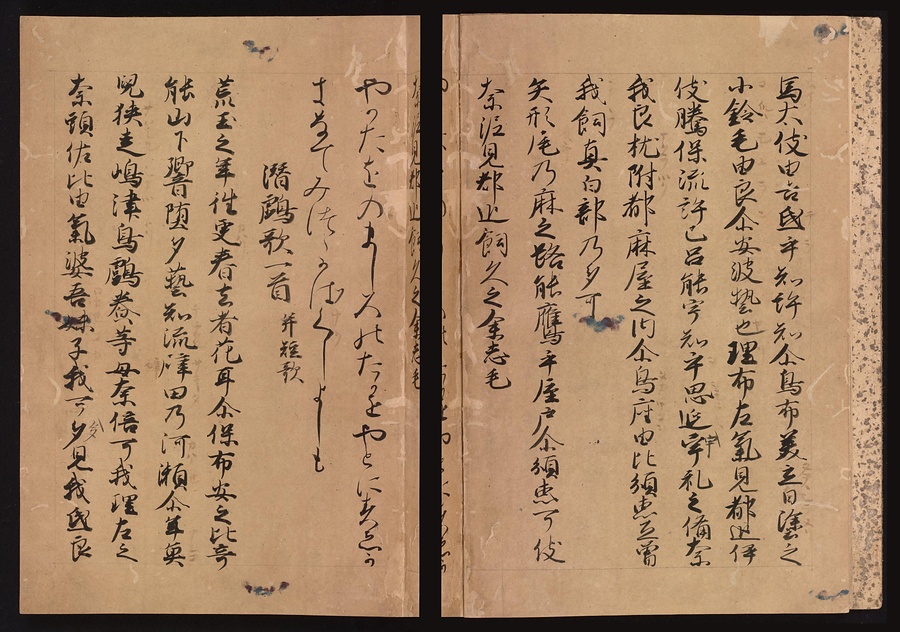 馬太伎由吉弖乎知許知尓鳥布美立白塗之
小鈴毛由良尓安波勢也理布左氣見都追伊
伎騰保流許己呂能宇知乎思延宇礼之備奈
我良枕附都麻屋之内尓鳥座由比須恵弖曽
我飼真白部乃多可
矢形尾乃麻之路能鷹乎屋戸尓須恵可伎
奈泥見都追飼久之余志毛
やかたをのましろのたかをやとにすゑか
きなてみつゝかはくしよしも
潜鸕歌一首 并短歌
荒玉之年徃更春去者花耳尓保布安之比奇
能山下響堕多藝知流辟田乃河瀬尓年魚
兒狭走嶋津鳥鸕養等母奈倍可我理左之
奈頭佐比由氣婆吾妹子我可多見我弖良